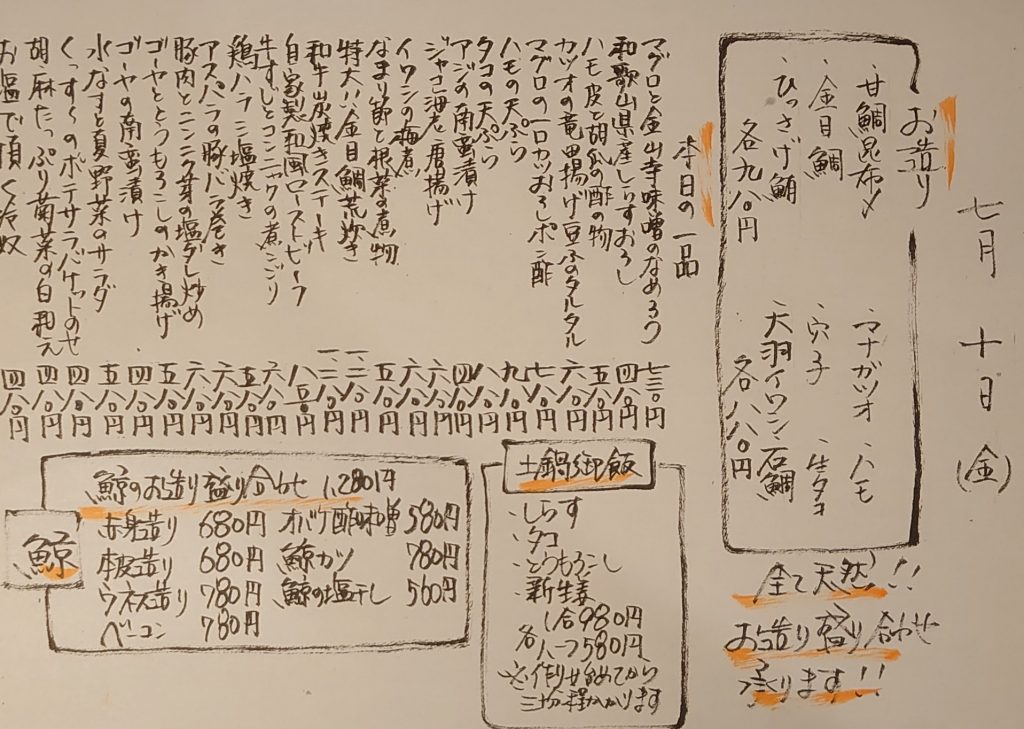 七月十日(金)
お造り
・甘鯛昆布〆
・金目鯛
・ひっさげ鮪
各九八〇円
・マナガツオ・ハモ
・穴子・生タコ
大羽イワシ・石鯛
各八八〇円
全て天然!!
お造り盛り合わせ
承ります!!
本日の一品
マグロと金山寺味噌のなめろう 七三〇円
和歌山県産しらすおろし 四八〇円
ハモ皮と胡瓜の酢の物 五八〇円
カツオの竜田揚げ豆ふのタルタル 六八〇円
マグロの一口カツおろしポン酢 七八〇円
ハモの天ぷら 九八〇円
タコの天ぷら 八八〇円
アジの南蛮漬け 四八〇円
ジャコ海老唐揚げ 六八〇円
イワシの梅煮 六八〇円
なまり節と根菜の煮物 五八〇円
特大!!金目鯛荒炊き
和牛炭焼きステーキ
自家製和風ローストビーフ
牛すじとコンニャクの煮
鶏ハラミ塩焼き 五八〇円
アスパラの豚バラ巻き 六八〇円
豚肉とニンニク芽の塩ダレ炒め 六八〇円
ゴーヤととうもろこしのかき揚げ 五八〇円
ゴーヤの南蛮漬け 四八〇円
水なすと夏野菜のサラダ 五八〇円
くっす〜のポテサラバケットのせ 四八〇円
胡麻たっぷり菊菜の白和え 四八〇円
お塩で頂く冷奴 四八〇円
土鍋御飯
・しらす
・タコ
・とうもろこし
・新生姜
各
一合980円
ハーフ580円
※作り始めてから
三十分程かかります
鯨
鯨のお造り盛り合わせ 1,280円
赤身造り 680円 オバケ酢味噌 580円
本皮造り 680円 鯨カツ 780円
ウネス造り 780円 鯨の塩干し 560円
ベーコン 780円